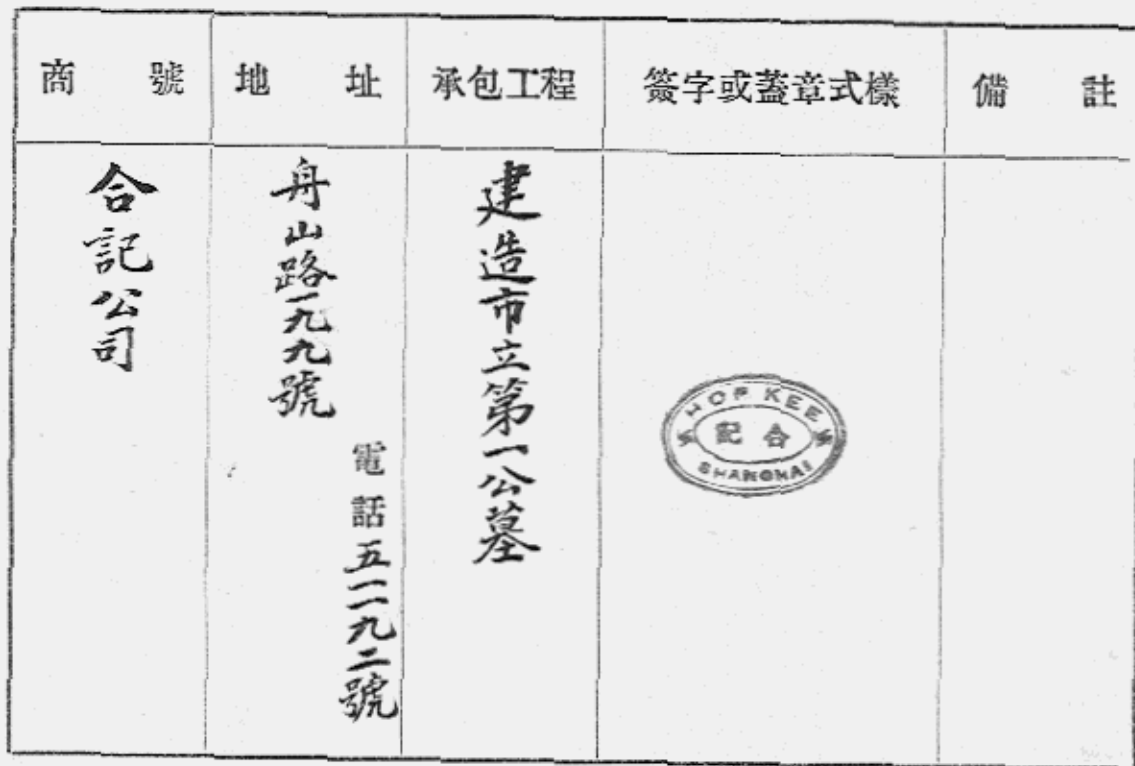 商號
地址
承包工程
簽字或蓋章式樣
備註
合記公司
舟山路一九九號
電話五一一九二號
建造市立第一公墓
HOP KEE
記合
SHANGHAI